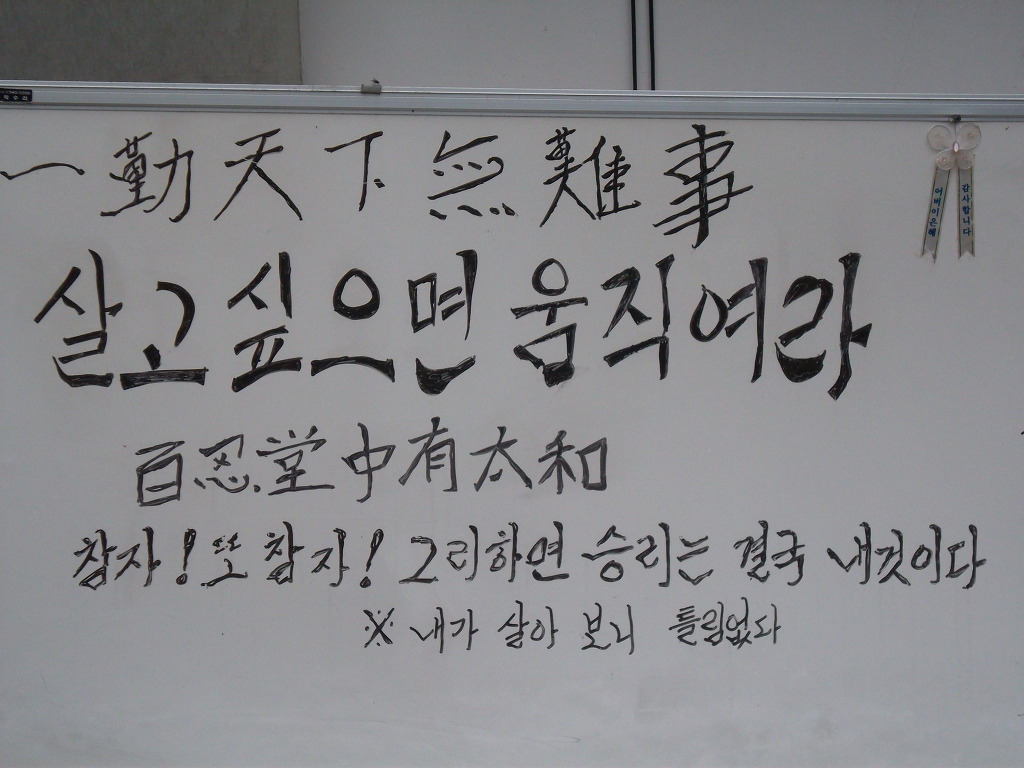 一勤天下無難事
살고싶으면 움직여라
百忍堂中有太和
참자! 또 참자! 그리하면 승리는 결국 내것이다
※ 내가 살아 보니 틀림없다
어버이은혜
감사합니다